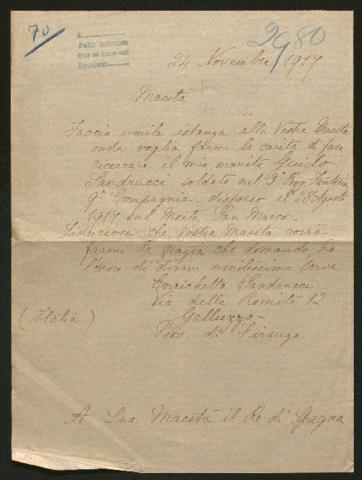 70
A
Pedir informes
Que se hace así
Escribir
2980
24 Novembre 1917
Maestà
Faccio umile istanza alla Vostra Maestà
onde voglia farmi la carità di fare
ricercare il mio marito Guido
Sandrucci soldato nel 3° Regg. Fanteria
9ª Compagnia disperso il 28 Agosto
1917 sul Monte San Marco.
Fiduciosa che Vostra Maestà vorrà
farmi la grazia che domando ho
l'onore di dirmi umilissima serva
Enrichetta Sandrucci
Via delle Romite 12
(Italia)
Galluzzo
Prov. di Firenze
A Sua Maestà il Re di Spagna